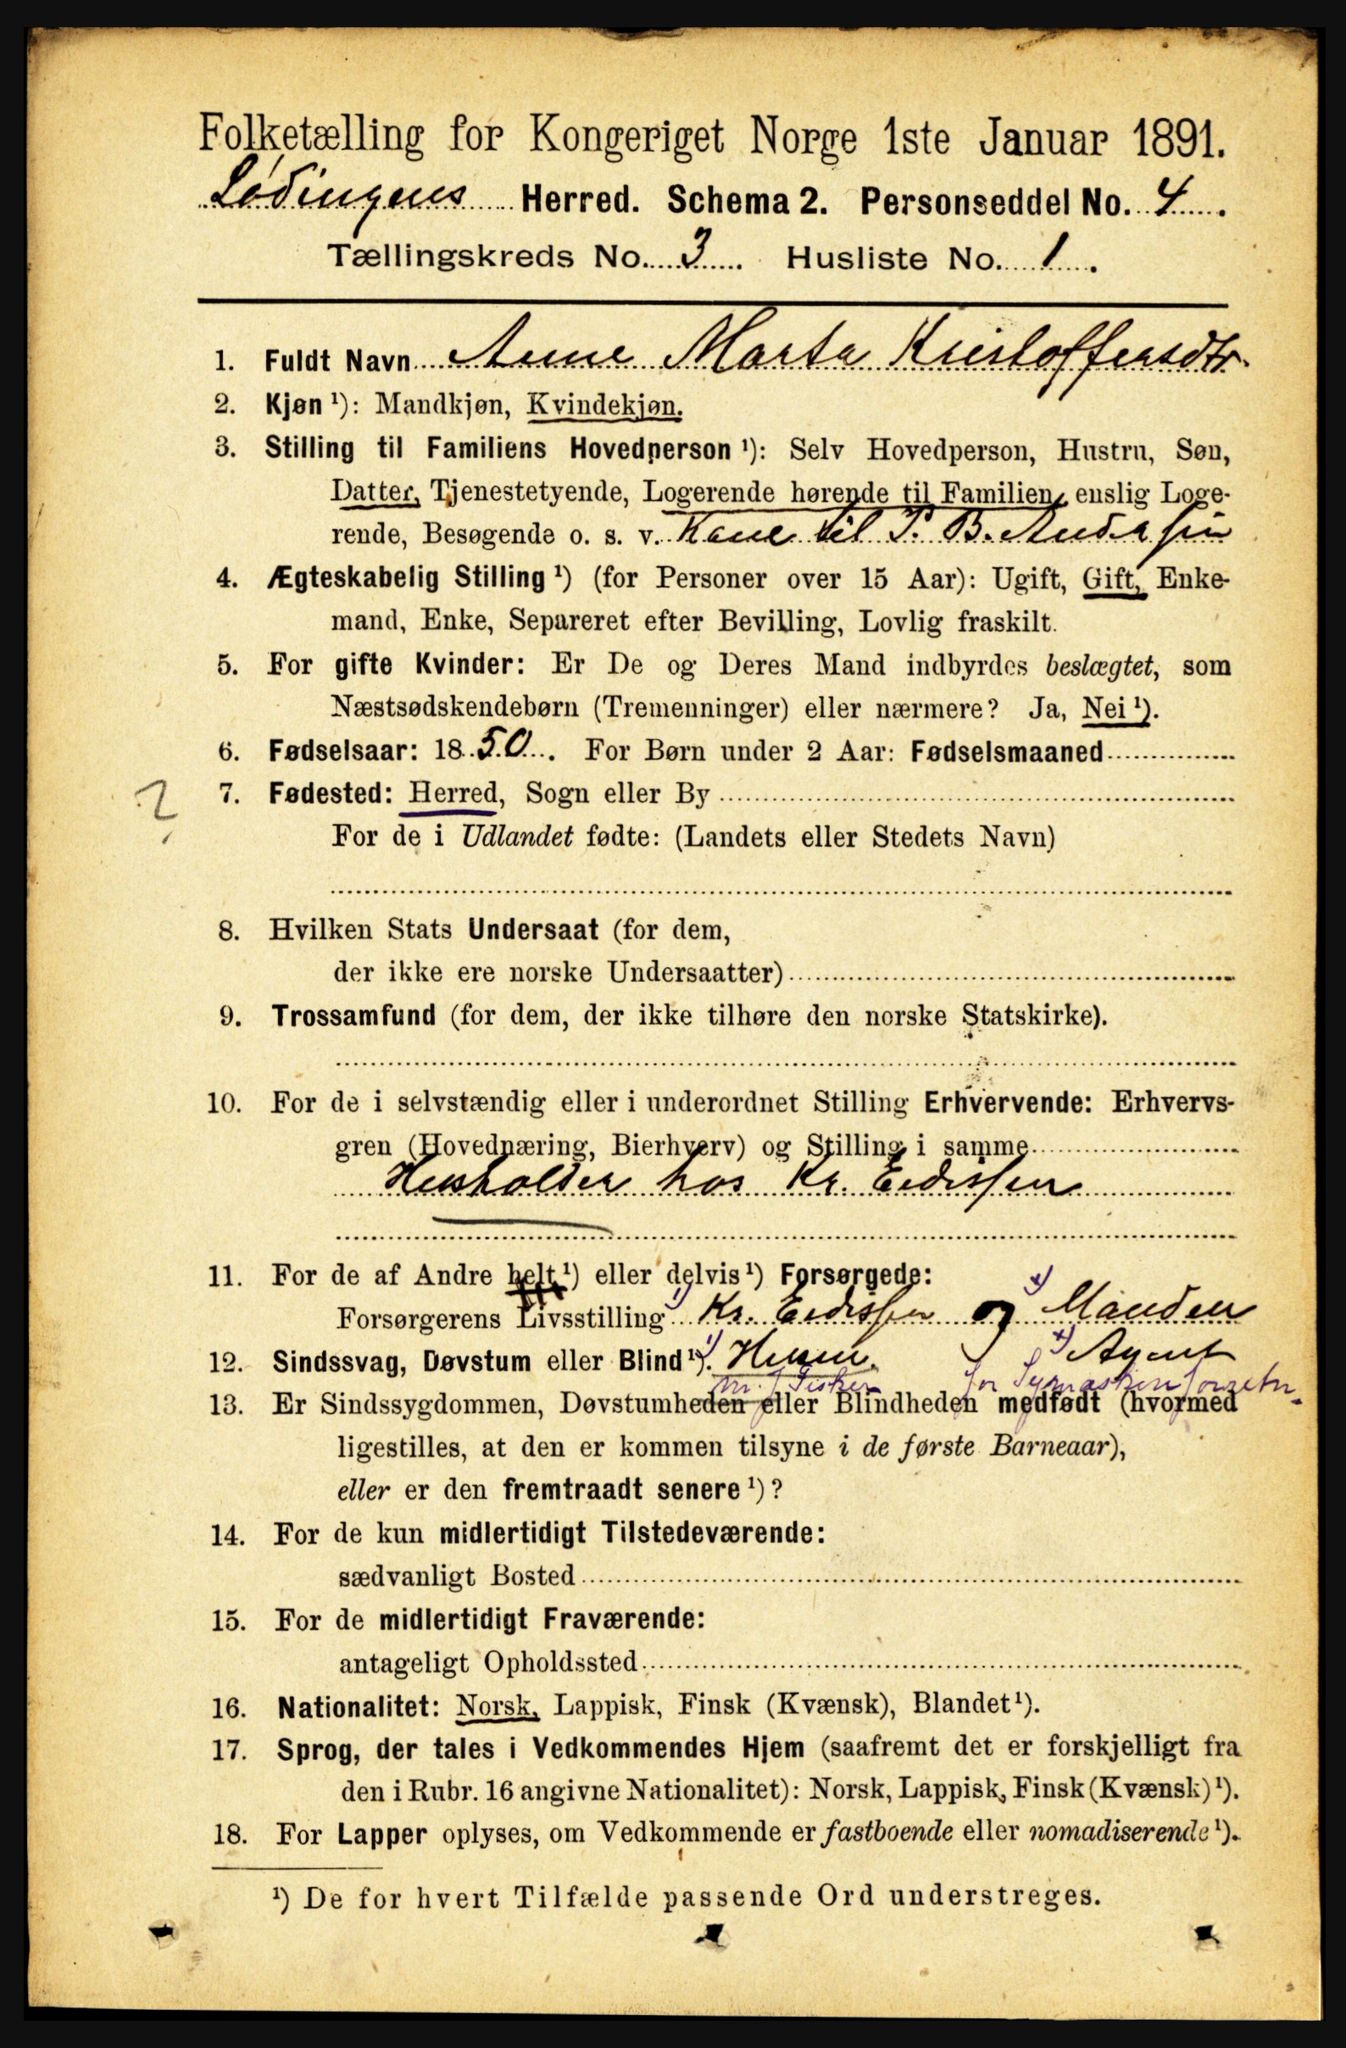 Folketælling for Kongeriget Norge 1ste Januar 1891.
Lødingens Herred. Schema 2. Personseddel No. 4.
Tællingskreds No. 3. Husliste No. 1.
1. Fuldt Navn Anne Marta Kristoffersdtr.
2. Kjøn ¹): Mandkjøn, Kvindekjøn.
3. Stilling til Familiens Hovedperson ¹): Selv Hovedperson, Hustru, Søn,
Datter, Tjenestetyende, Logerende hørende til Familien, enslig Loge-
rende, Besøgende o. s. v. Kone til P. B. Andersen
4. Ægteskabelig Stilling ¹) (for Personer over 15 Aar): Ugift, Gift, Enke-
mand, Enke, Separeret efter Bevilling, Lovlig fraskilt.
5. For gifte Kvinder: Er De og Deres Mand indbyrdes beslægtet, som
Næstsødskendebørn (Tremenninger) eller nærmere? Ja, Nei ¹).
6. Fødselsaar: 1850. For Børn under 2 Aar: Fødselsmaaned
? 7. Fødested: Herred, Sogn eller By
For de i Udlandet fødte: (Landets eller Stedets Navn)
8. Hvilken Stats Undersaat (for dem,
der ikke ere norske Undersaatter)
9. Trossamfund (for dem, der ikke tilhøre den norske Statskirke).
10. For de i selvstændig eller i underordnet Stilling Erhvervende: Erhvervs-
gren (Hovednæring, Bierhverv) og Stilling i samme
Husholder hos Kr. Edissen
11. For de af Andre helt ¹) eller delvis ¹) Forsørgede:
Forsørgerens Livsstilling ¹) Kr. Edissen og ˣ) Manden
12. Sindssvag, Døvstum eller Blind ¹). ¹) ˣ) Agent
m. Fisker for Symaskinforretn.
13. Er Sindssygdommen, Døvstumheden eller Blindheden medfødt (hvormed
ligestilles, at den er kommen tilsyne i de første Barneaar),
eller er den fremtraadt senere ¹)?
14. For de kun midlertidigt Tilstedeværende:
sædvanligt Bosted
15. For de midlertidigt Fraværende:
antageligt Opholdssted
16. Nationalitet: Norsk, Lappisk, Finsk (Kvænsk), Blandet ¹).
17. Sprog, der tales i Vedkommendes Hjem (saafremt det er forskjelligt fra
den i Rubr. 16 angivne Nationalitet): Norsk, Lappisk, Finsk (Kvænsk) ¹).
18. For Lapper oplyses, om Vedkommende er fastboende eller nomadiserende ¹).
¹) De for hvert Tilfælde passende Ord understreges.